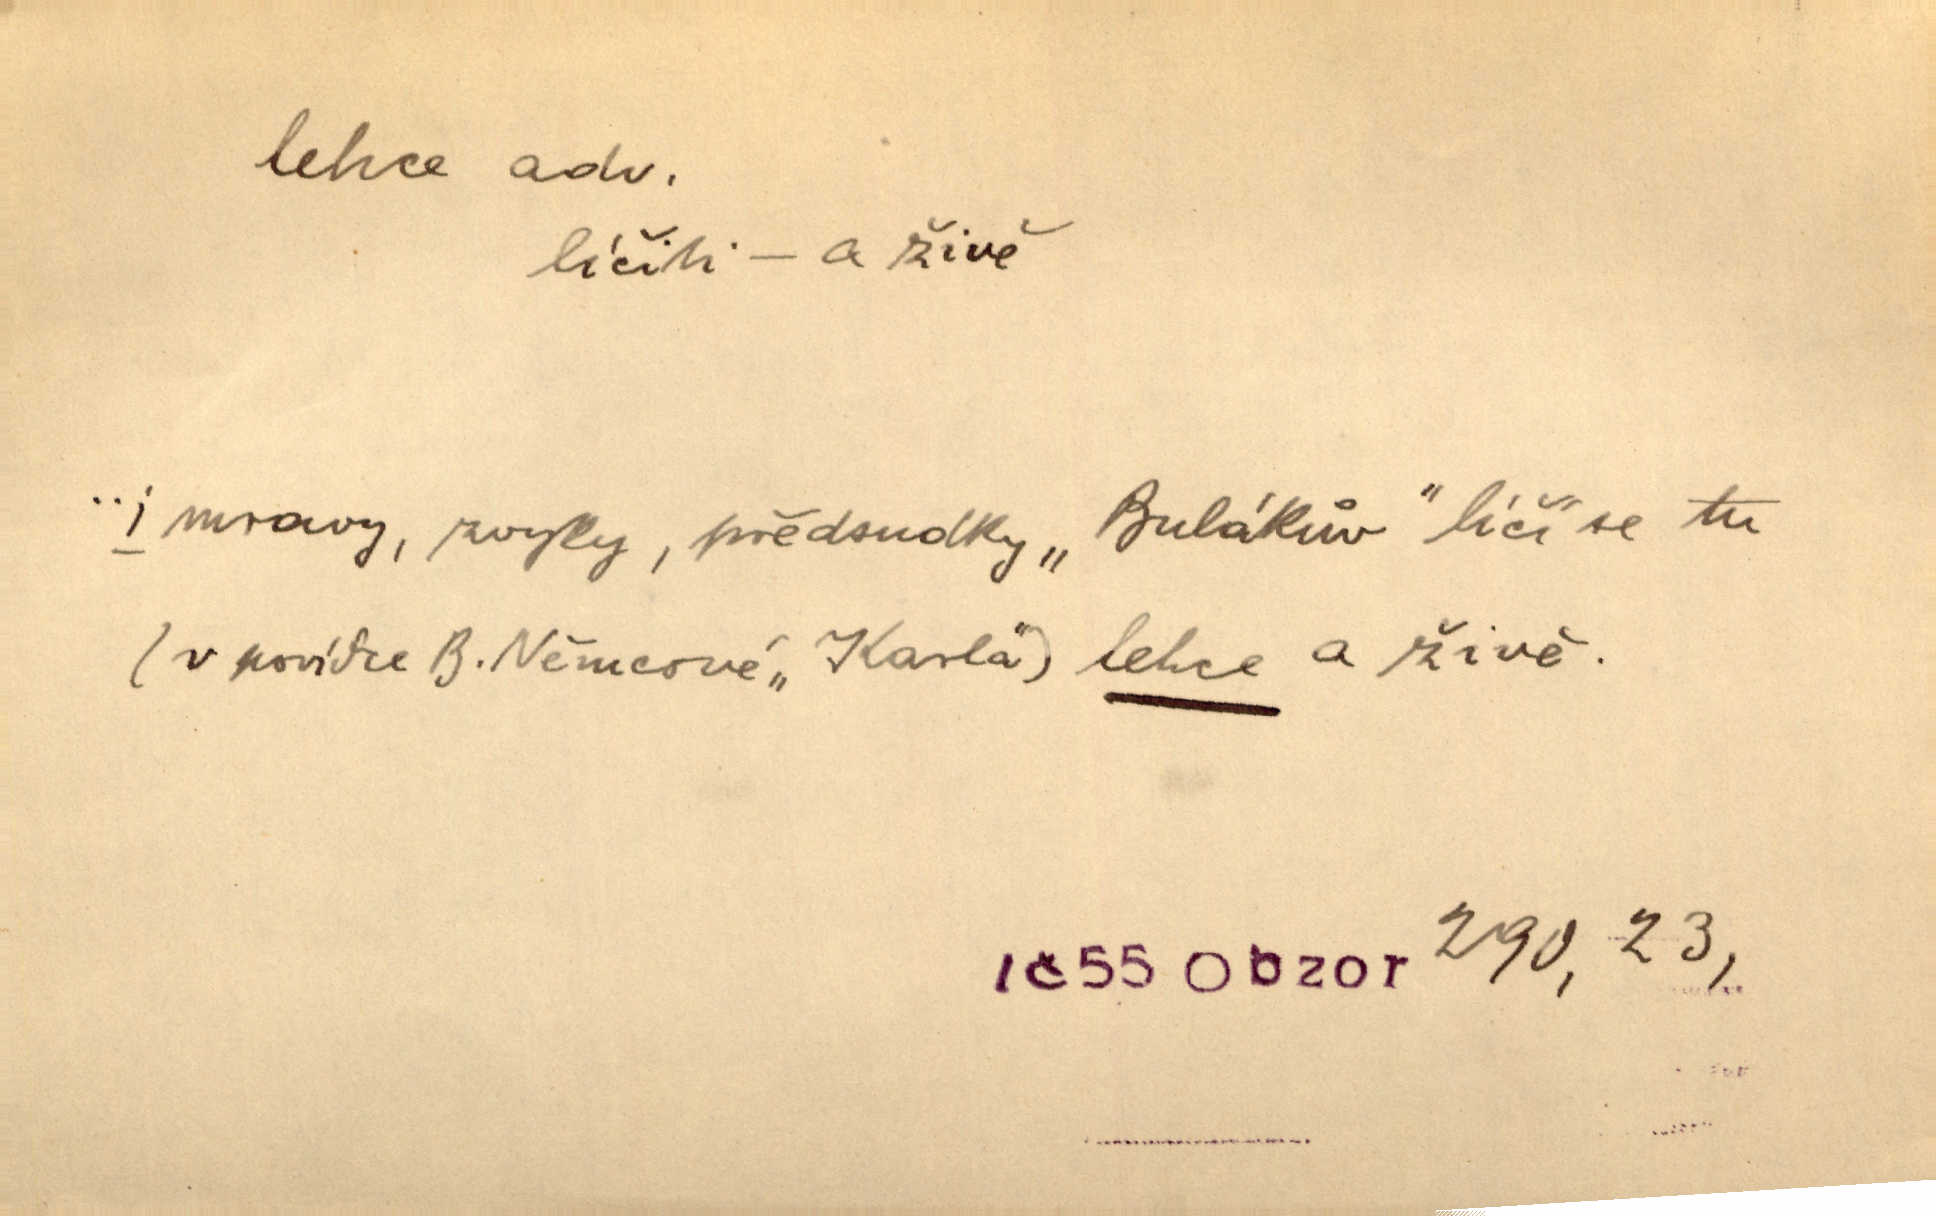 lehce adv.
líčiti — a živě
..i mravy, zvyky, předsudky „Bulákův" líčí se tu
(v povídce B. Němcové „Karla") lehce a živě.
1855 Obzor 290, 23,